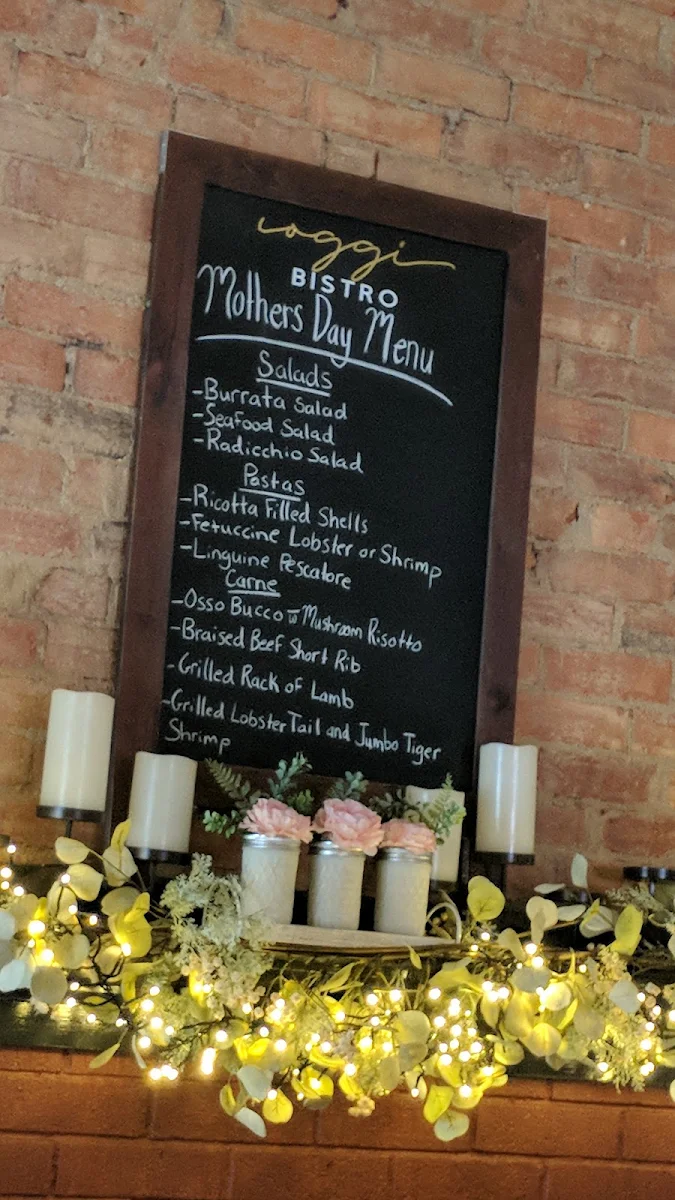 ioggi
BISTRO
Mothers Day Menu
Salads
-Burrata Salad
-Seafood Salad
-Radicchio Salad
Pastas
-Ricotta Filled Shells
-Fetuccine Lobster or Shrimp
-Linguine Pescatore
Carne
-Osso Bucco w Mushroom Risotto
-Braised Beef Short Rib
-Grilled Rack of Lamb
-Grilled Lobster Tail and Jumbo Tiger
Shrimp